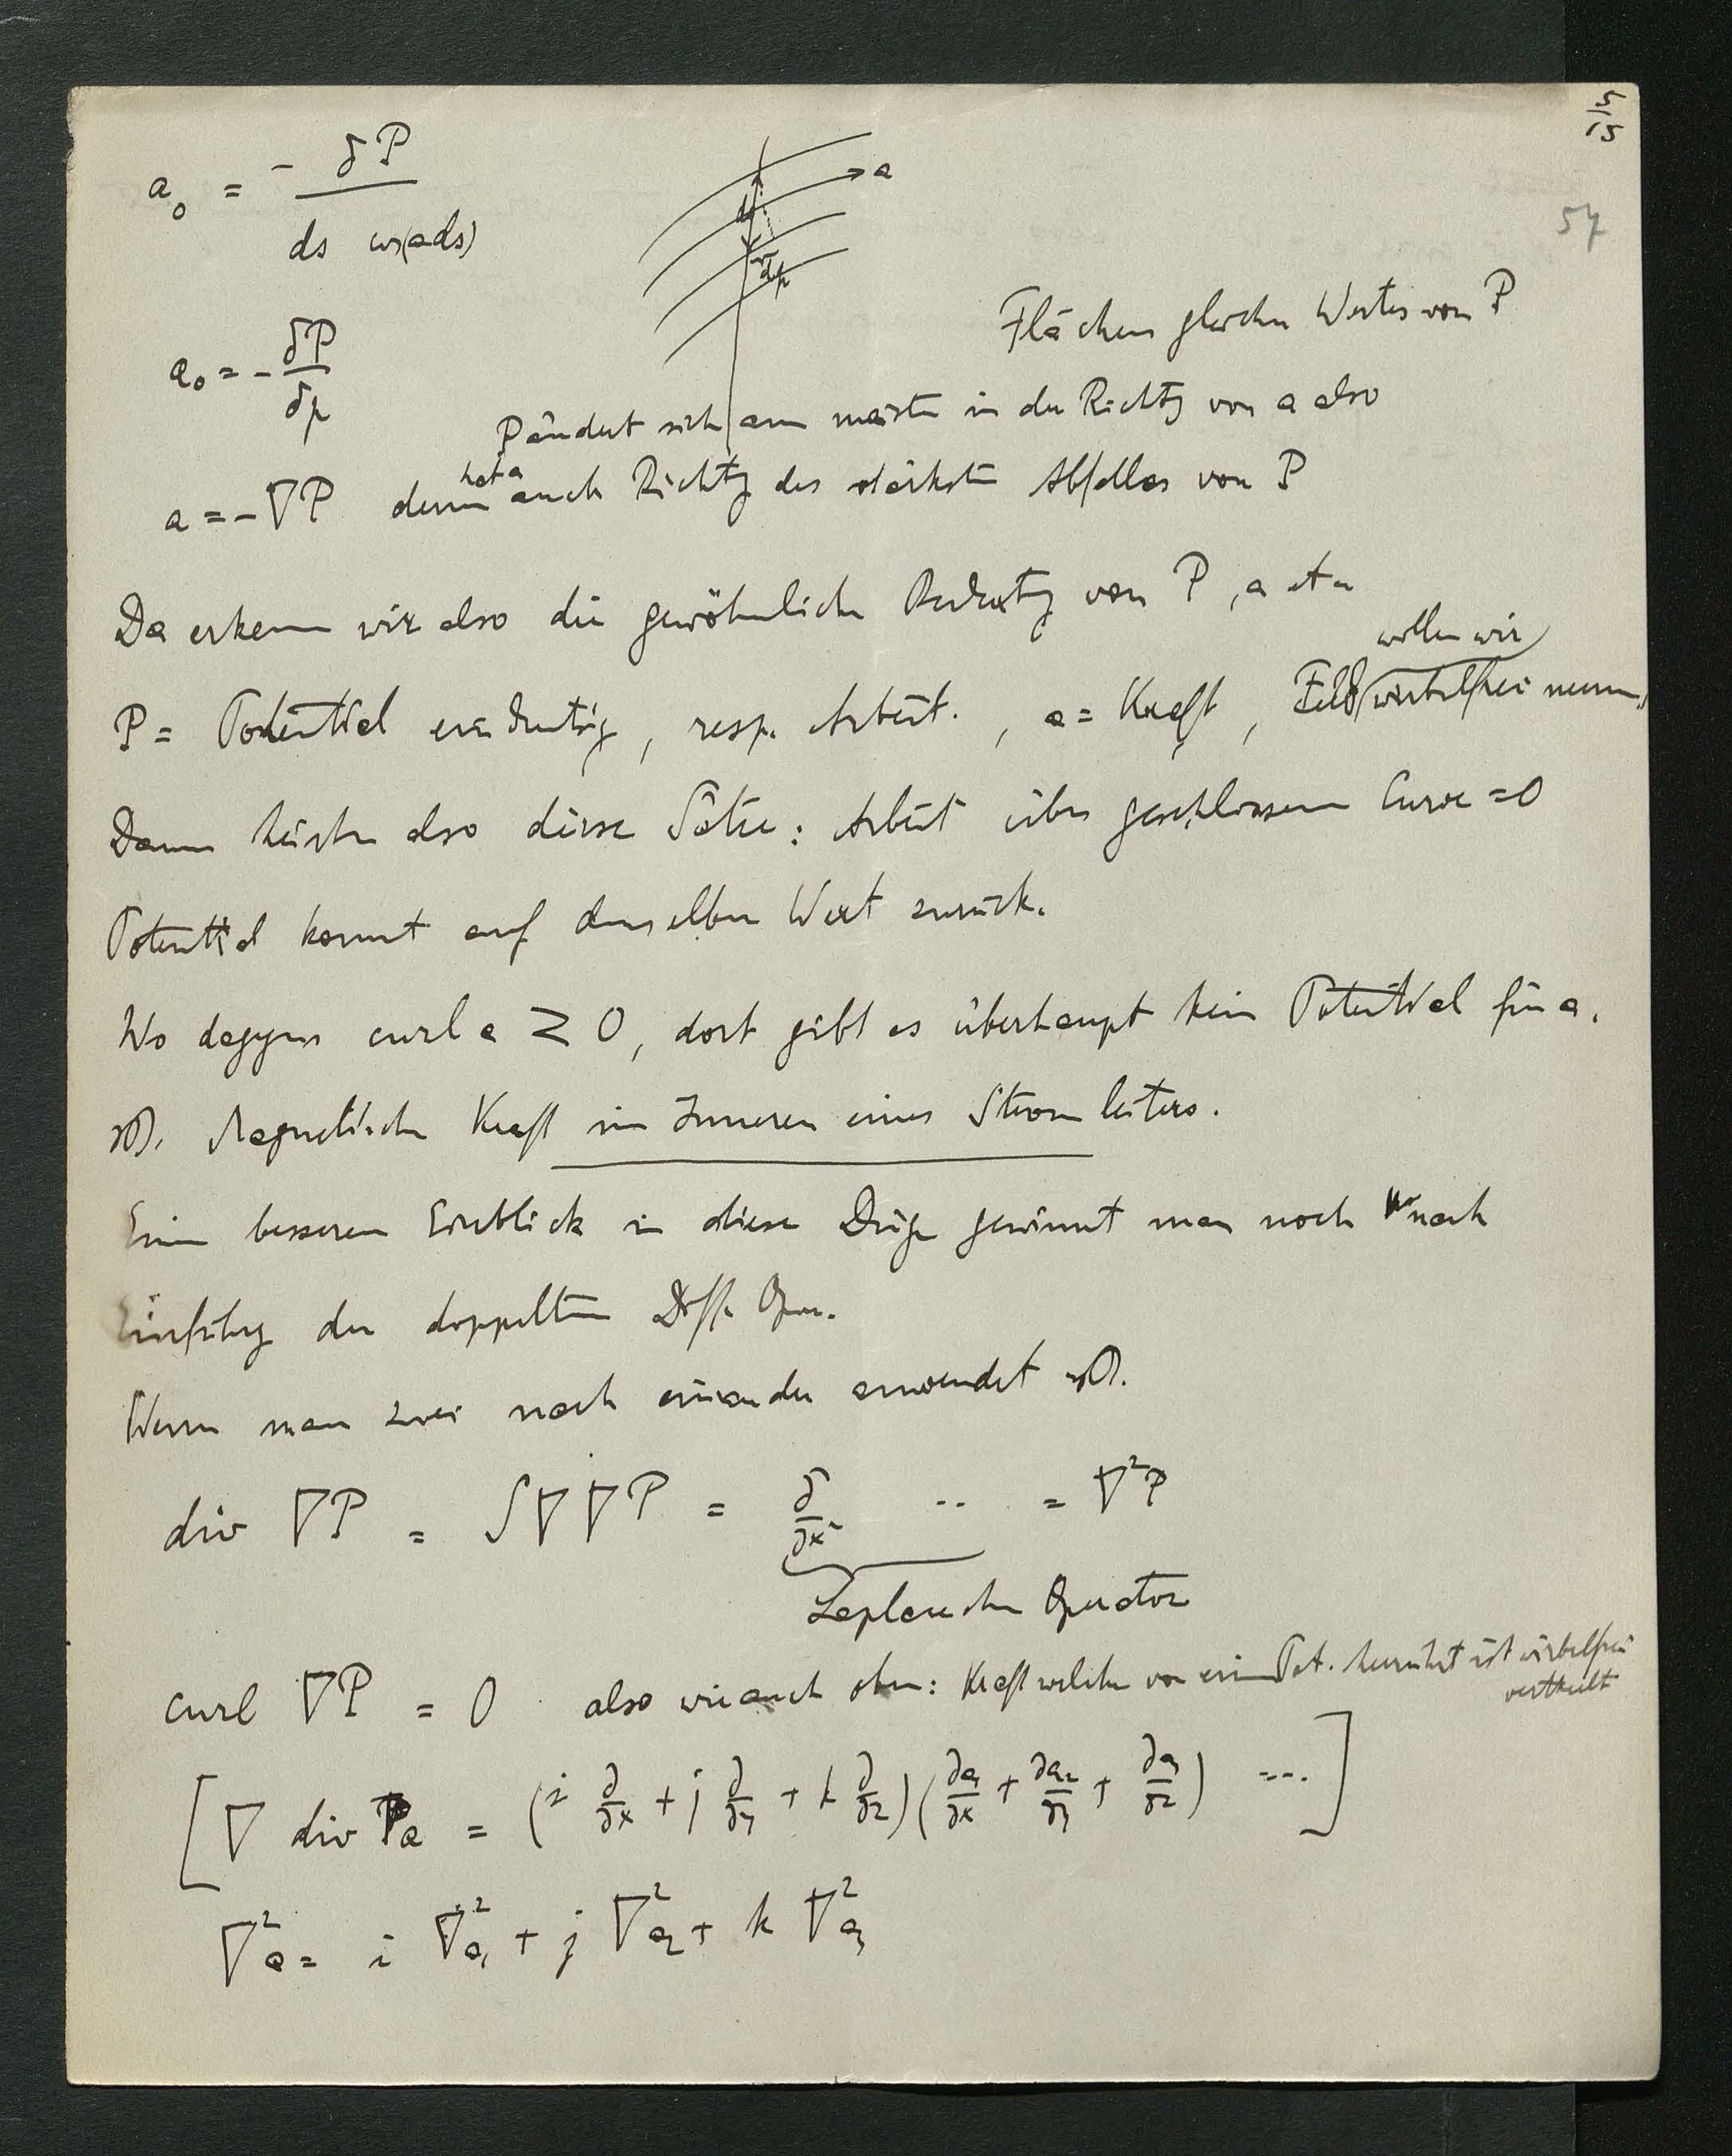 5/5
57
a₀ = - δP / ds cos(a ds)
a
ds
dp
Flächen gleichen Wertes von P
a₀ = - δP / δp
P ändert sich am meisten in der Richtg von a also
a = -∇P denn hat a auch Richtg des stärksten Abfalles von P
Da erkenn wir also die gewöhnliche Bedeutg von P, a etc
wollen wir
P = Potential eindeutig, resp. Arbeit., a = Kraft, Feld wirbelfrei nennen
Dann heisten also diese Sätze: Arbeit über geschlossene Curve = 0
Potential kommt auf denselben Wert zurück.
Wo dagegen curl a ≷ 0, dort gibt es überhaupt kein Potential für a.
zB. Magnetische Kraft im Inneren eines Stromleiters.
Einen besseren Einblick in diese Dinge gewinnt man noch nach
Einführg der doppelten Diff. Oper.
Wenn man zwei nach einander anwendet zB.
div ∇P = S∇∇P = δ/∂x² .. = ∇²P
Laplacescher Operator
curl ∇P = 0 also wie auch oben: Kraft welche von einem Pot. herrührt ist wirbelfrei
vertheilt
[∇ div a = (i ∂/∂x + j ∂/∂y + k ∂/∂z)(∂a₁/∂x + ∂a₂/∂y + ∂a₃/∂z) ....]
∇²a = i ∇²a₁ + j ∇²a₂ + k ∇²a₃